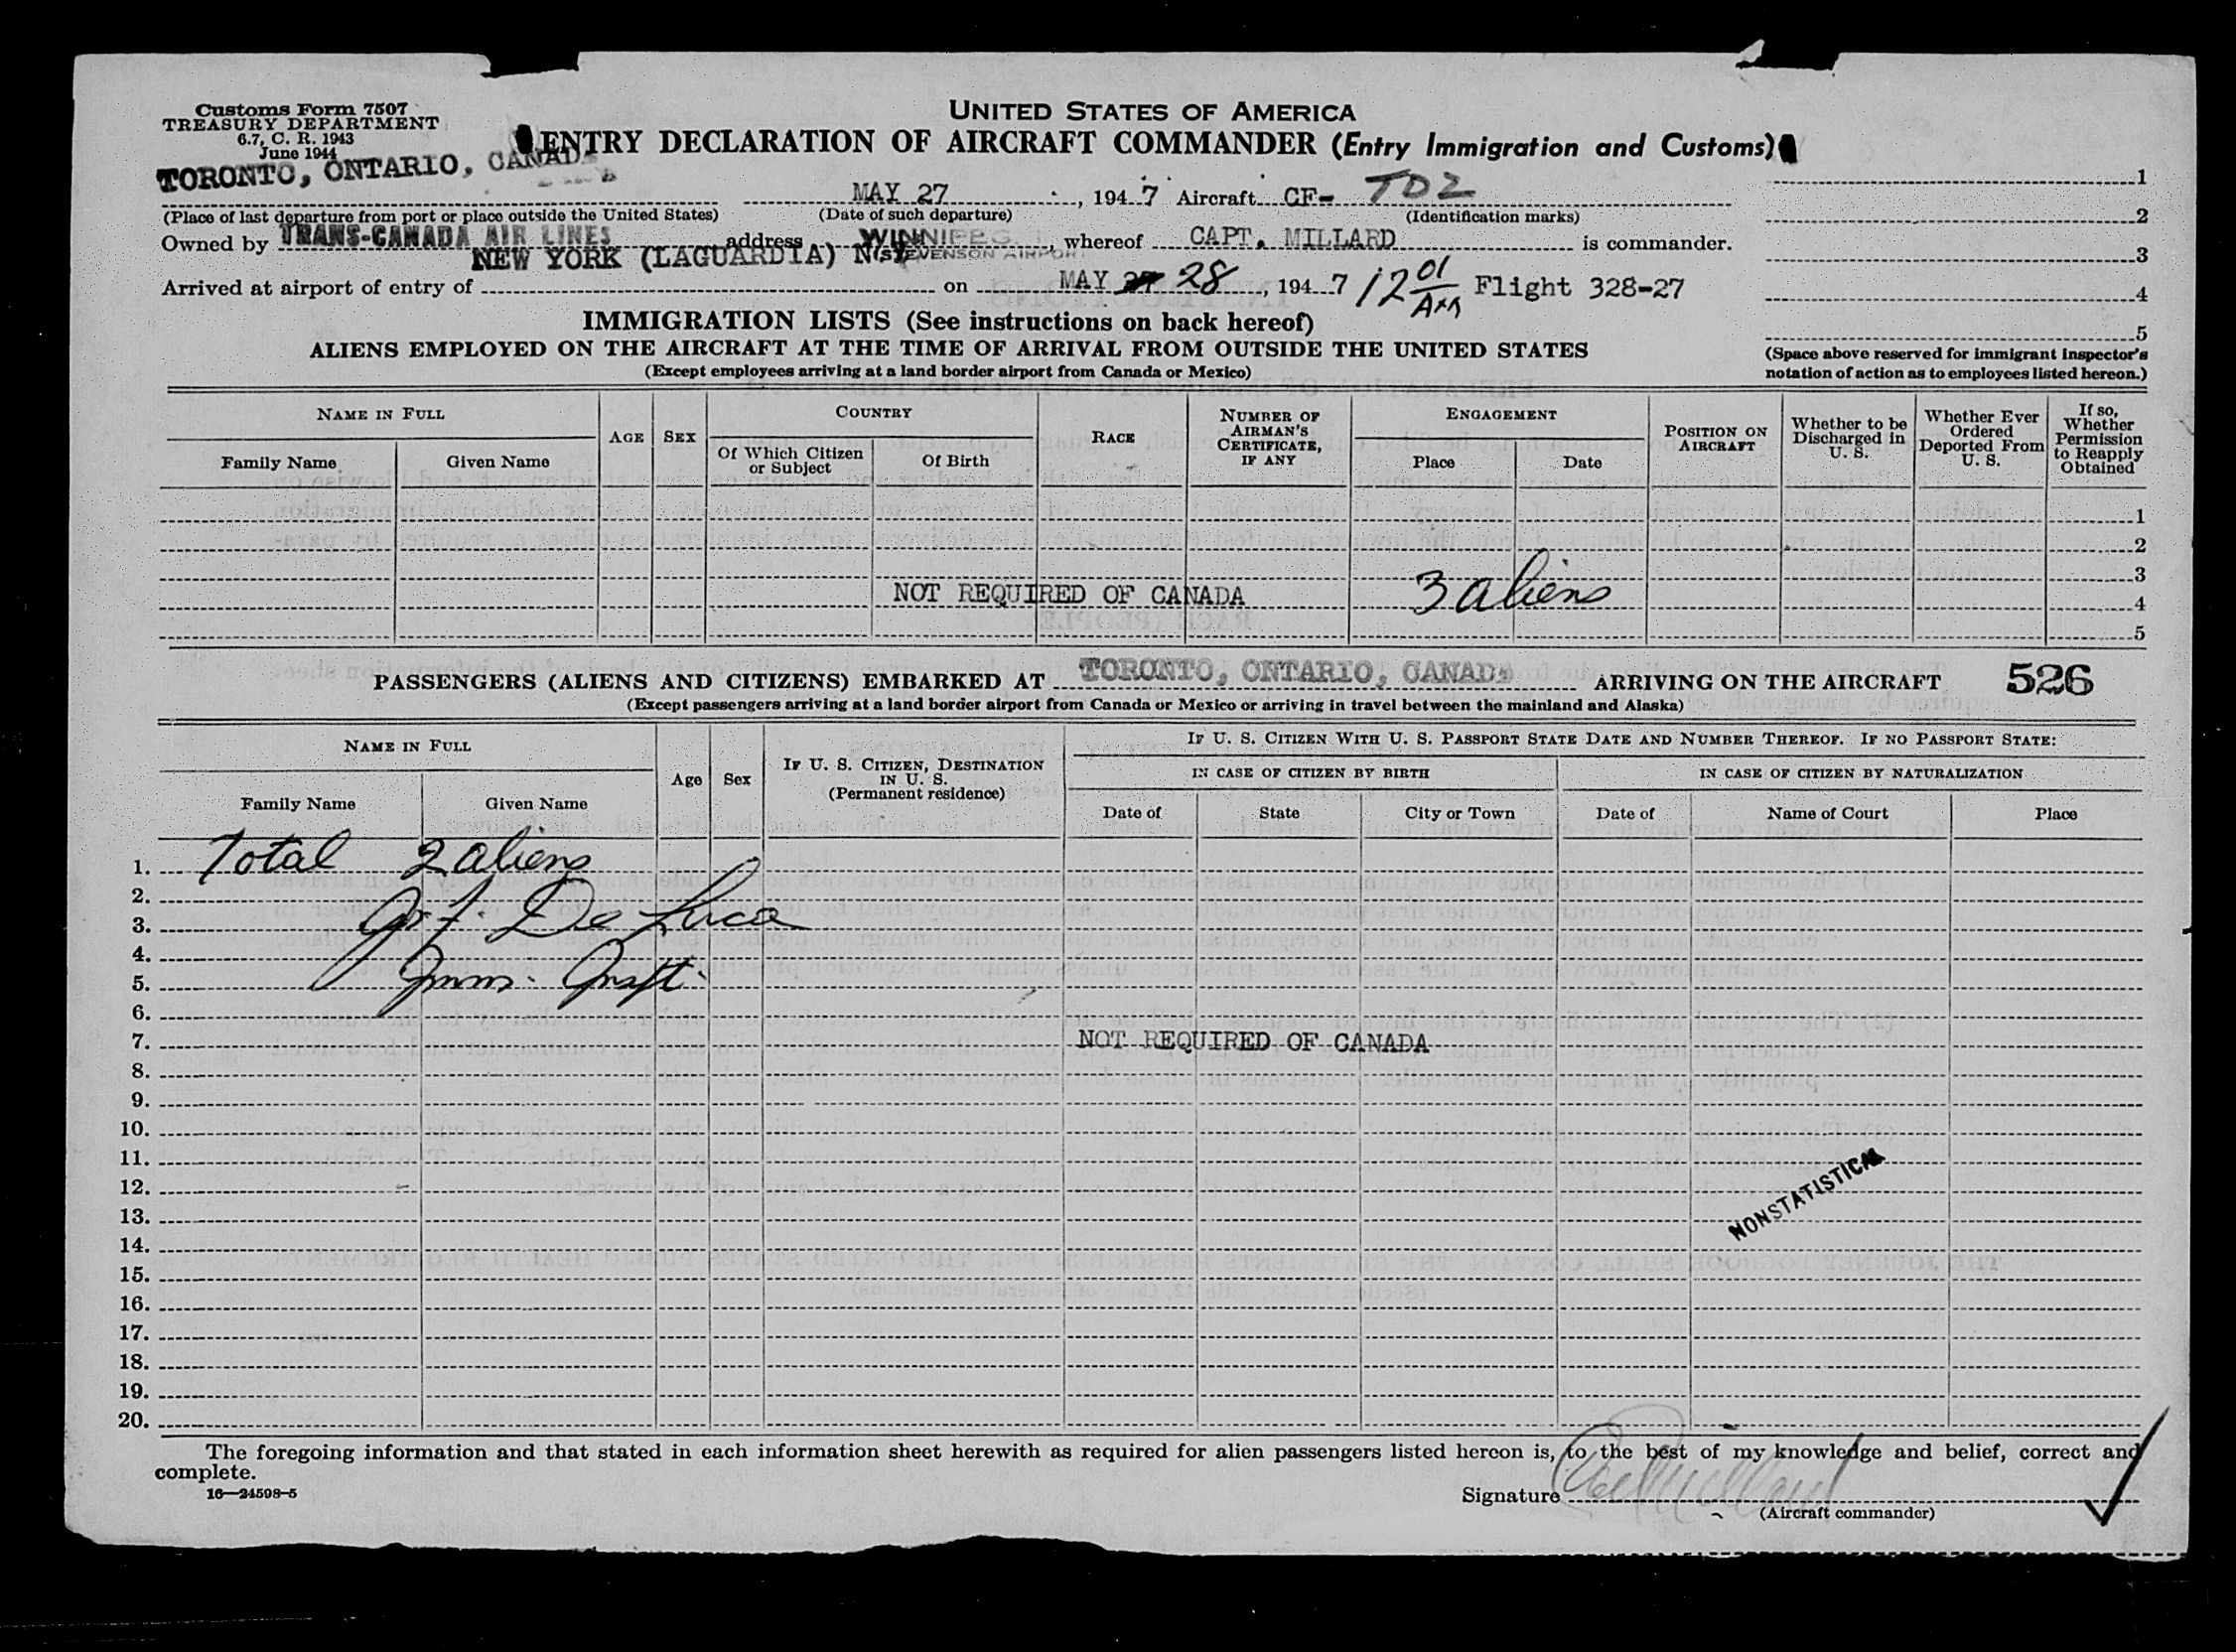 Customs Form 7507
TREASURY DEPARTMENT
6.7, C. R. 1943
June 1944
UNITED STATES OF AMERICA
ENTRY DECLARATION OF AIRCRAFT COMMANDER (Entry Immigration and Customs)
TORONTO, ONTARIO, CANADA
MAY 27, 1947 Aircraft CF- TDZ
(Place of last departure from port or place outside the United States) (Date of such departure) (Identification marks)
Owned by TRANS-CANADA AIR LINES address WINNIPEG, whereof CAPT. MILLARD is commander.
(STEVENSON AIRPORT
NEW YORK (LAGUARDIA) N.Y.
Arrived at airport of entry of on MAY 27 28, 1947 12 01 AM Flight 328-27
1
2
3
4
5
(Space above reserved for immigrant inspector's
notation of action as to employees listed hereon.)
IMMIGRATION LISTS (See instructions on back hereof)
ALIENS EMPLOYED ON THE AIRCRAFT AT THE TIME OF ARRIVAL FROM OUTSIDE THE UNITED STATES
(Except employees arriving at a land border airport from Canada or Mexico)
NAME IN FULL
Family Name
Given Name
AGE
SEX
COUNTRY
Of Which Citizen or Subject
Of Birth
RACE
NUMBER OF AIRMAN'S CERTIFICATE, IF ANY
ENGAGEMENT
Place
Date
POSITION ON AIRCRAFT
Whether to be Discharged in U. S.
Whether Ever Ordered Deported From U. S.
If so, Whether Permission to Reapply Obtained
1
2
3
NOT REQUIRED OF CANADA 3 aliens 4
5
PASSENGERS (ALIENS AND CITIZENS) EMBARKED AT TORONTO, ONTARIO, CANADA ARRIVING ON THE AIRCRAFT 526
(Except passengers arriving at a land border airport from Canada or Mexico or arriving in travel between the mainland and Alaska)
NAME IN FULL
Family Name
Given Name
Age
Sex
IF U. S. CITIZEN, DESTINATION IN U. S.
(Permanent residence)
IF U. S. CITIZEN WITH U. S. PASSPORT STATE DATE AND NUMBER THEREOF. IF NO PASSPORT STATE:
IN CASE OF CITIZEN BY BIRTH
IN CASE OF CITIZEN BY NATURALIZATION
Date of
State
City or Town
Date of
Name of Court
Place
1. Total 2 aliens
2.
3. De Luca
4.
5. Imm. Inspt.
6.
7. NOT REQUIRED OF CANADA
8.
9.
10.
11.
12.
13. NONSTATISTICAL
14.
15.
16.
17.
18.
19.
20.
The foregoing information and that stated in each information sheet herewith as required for alien passengers listed hereon is, to the best of my knowledge and belief, correct and
complete.
16—24598-5
Signature
(Aircraft commander)